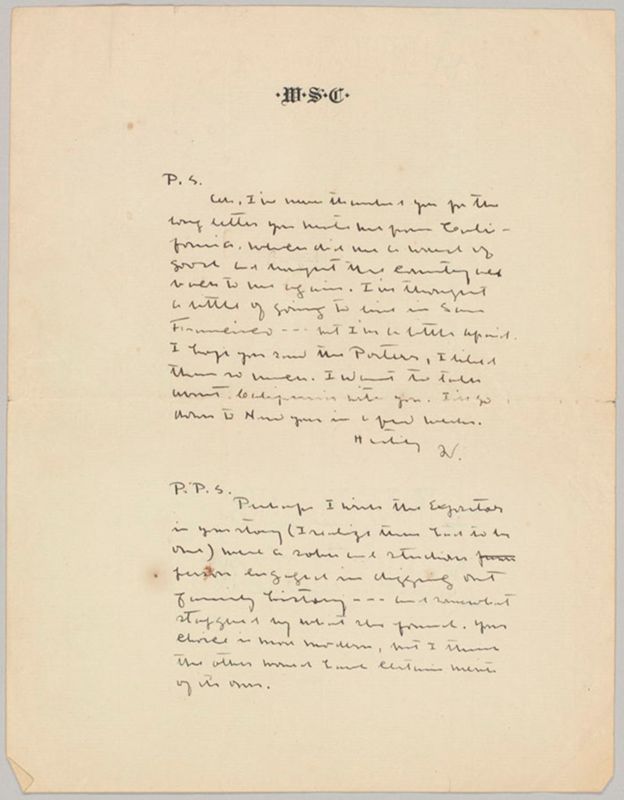 ·W·S·C·
P. S.
I've never thanked you for the
long letter you wrote me from Cali-
fornia. which did me a world of
good and brought the country all
back to me again. I've thought
a little of going to live in San
Francisco --- but I'm a little afraid.
I hope you saw the Porters, I liked
them so much. I want to talk
about California with you. I'll go
down to New in a few weeks.
Hastily
W.
P. P. S.
Perhaps I wish the Expositor
in your story (I realize there had to be
one) were a sober and studious
person engaged in digging out
family history --- and somewhat
staggered by what she found. Your
choice is more modern, but I think
the other would have certain merits
of its own.